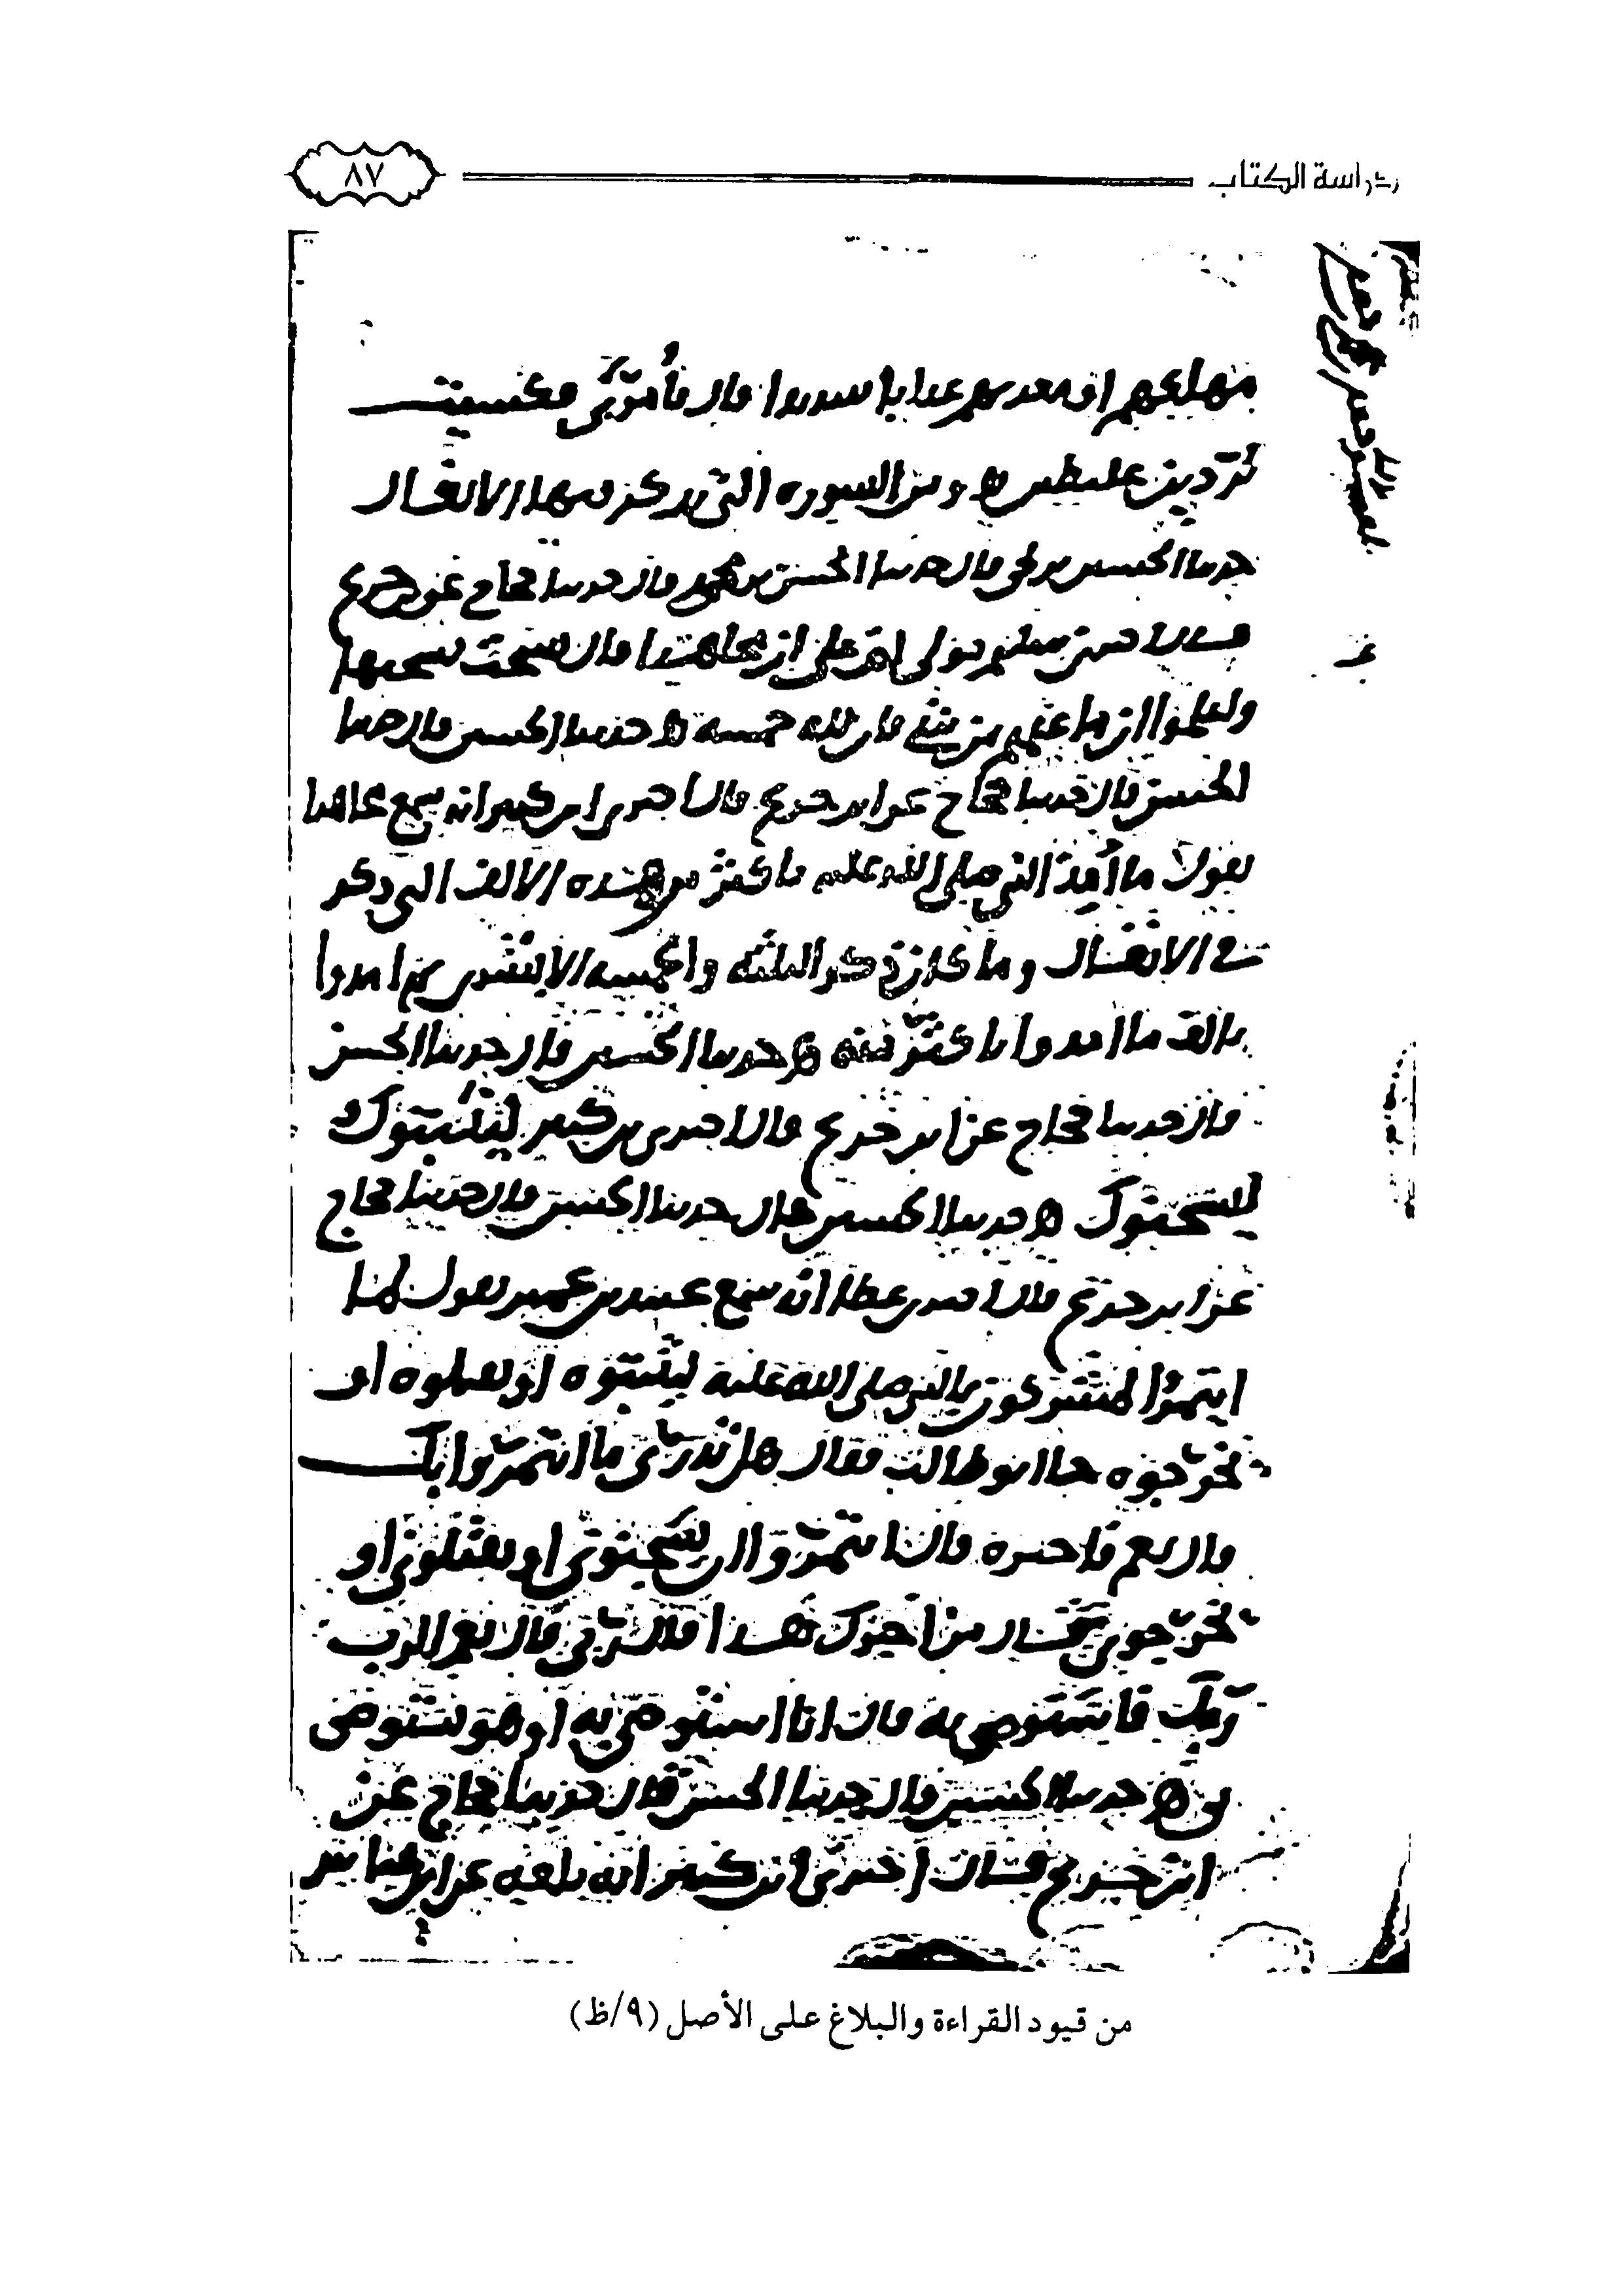 دراسة الكتاب
٨٧
مهلكهم او معذبهم عذابا شديدا قال فأمرني فكسيت
بردين غليظين ه ومن السوره التي يذكر فيها الانفال
حدثنا الحسين بن قال حدثنا الحسن بن محمد قال حدثنا حجاج عن جريج
قال سليم مولى ام علي ان مجاهدا قال نسختها
واعلموا ان ما غنمتم من شي فان لله خمسه ه حدثنا الحسين قال حدثنا
الحسن قال حدثنا حجاج عن ابن جريج قال اخبرني ابن كثير انه سمع مجاهدا
يقول ما امد النبي صلى الله عليه باكثر من هذه الالف التي ذكر
في الانفال وما كان ذكر الثلثه والخمسه الا بشرى ثم امدوا
بالف ما امدوا باكثر منه ه حدثنا الحسين قال حدثنا الحسن
قال حدثنا حجاج عن ابن جريج قال اخبرني بن كثير ليثبتوك
ليسجنوك ه حدثنا الحسين قال حدثنا الحسن قال حدثنا حجاج
عن ابن جريج قال اخبرني عطا انه سمع عبيد بن عمير يقول لما
ايتمروا المشركون بالنبي صلى الله عليه ليثبتوه او يقتلوه او
يخرجوه جا ابو طالب فقال هل تدري ما ائتمروا بك
قال نعم فاخبره قال ائتمروا ان يسجنوني او يقتلوني او
يخرجوني قال من اخبرك هذا قال ربي قال نعم الرب
ربك فاستوصي به قال انا استوصي به او هو يستوصي
بي ه حدثنا الحسين قال حدثنا الحسن قال حدثنا حجاج عن
ابن جريج قال اخبرني ابن كثير انه بلغه عن ابن عباس
من قيود القراءة والبلاغ على الأصل (٩/ظ)